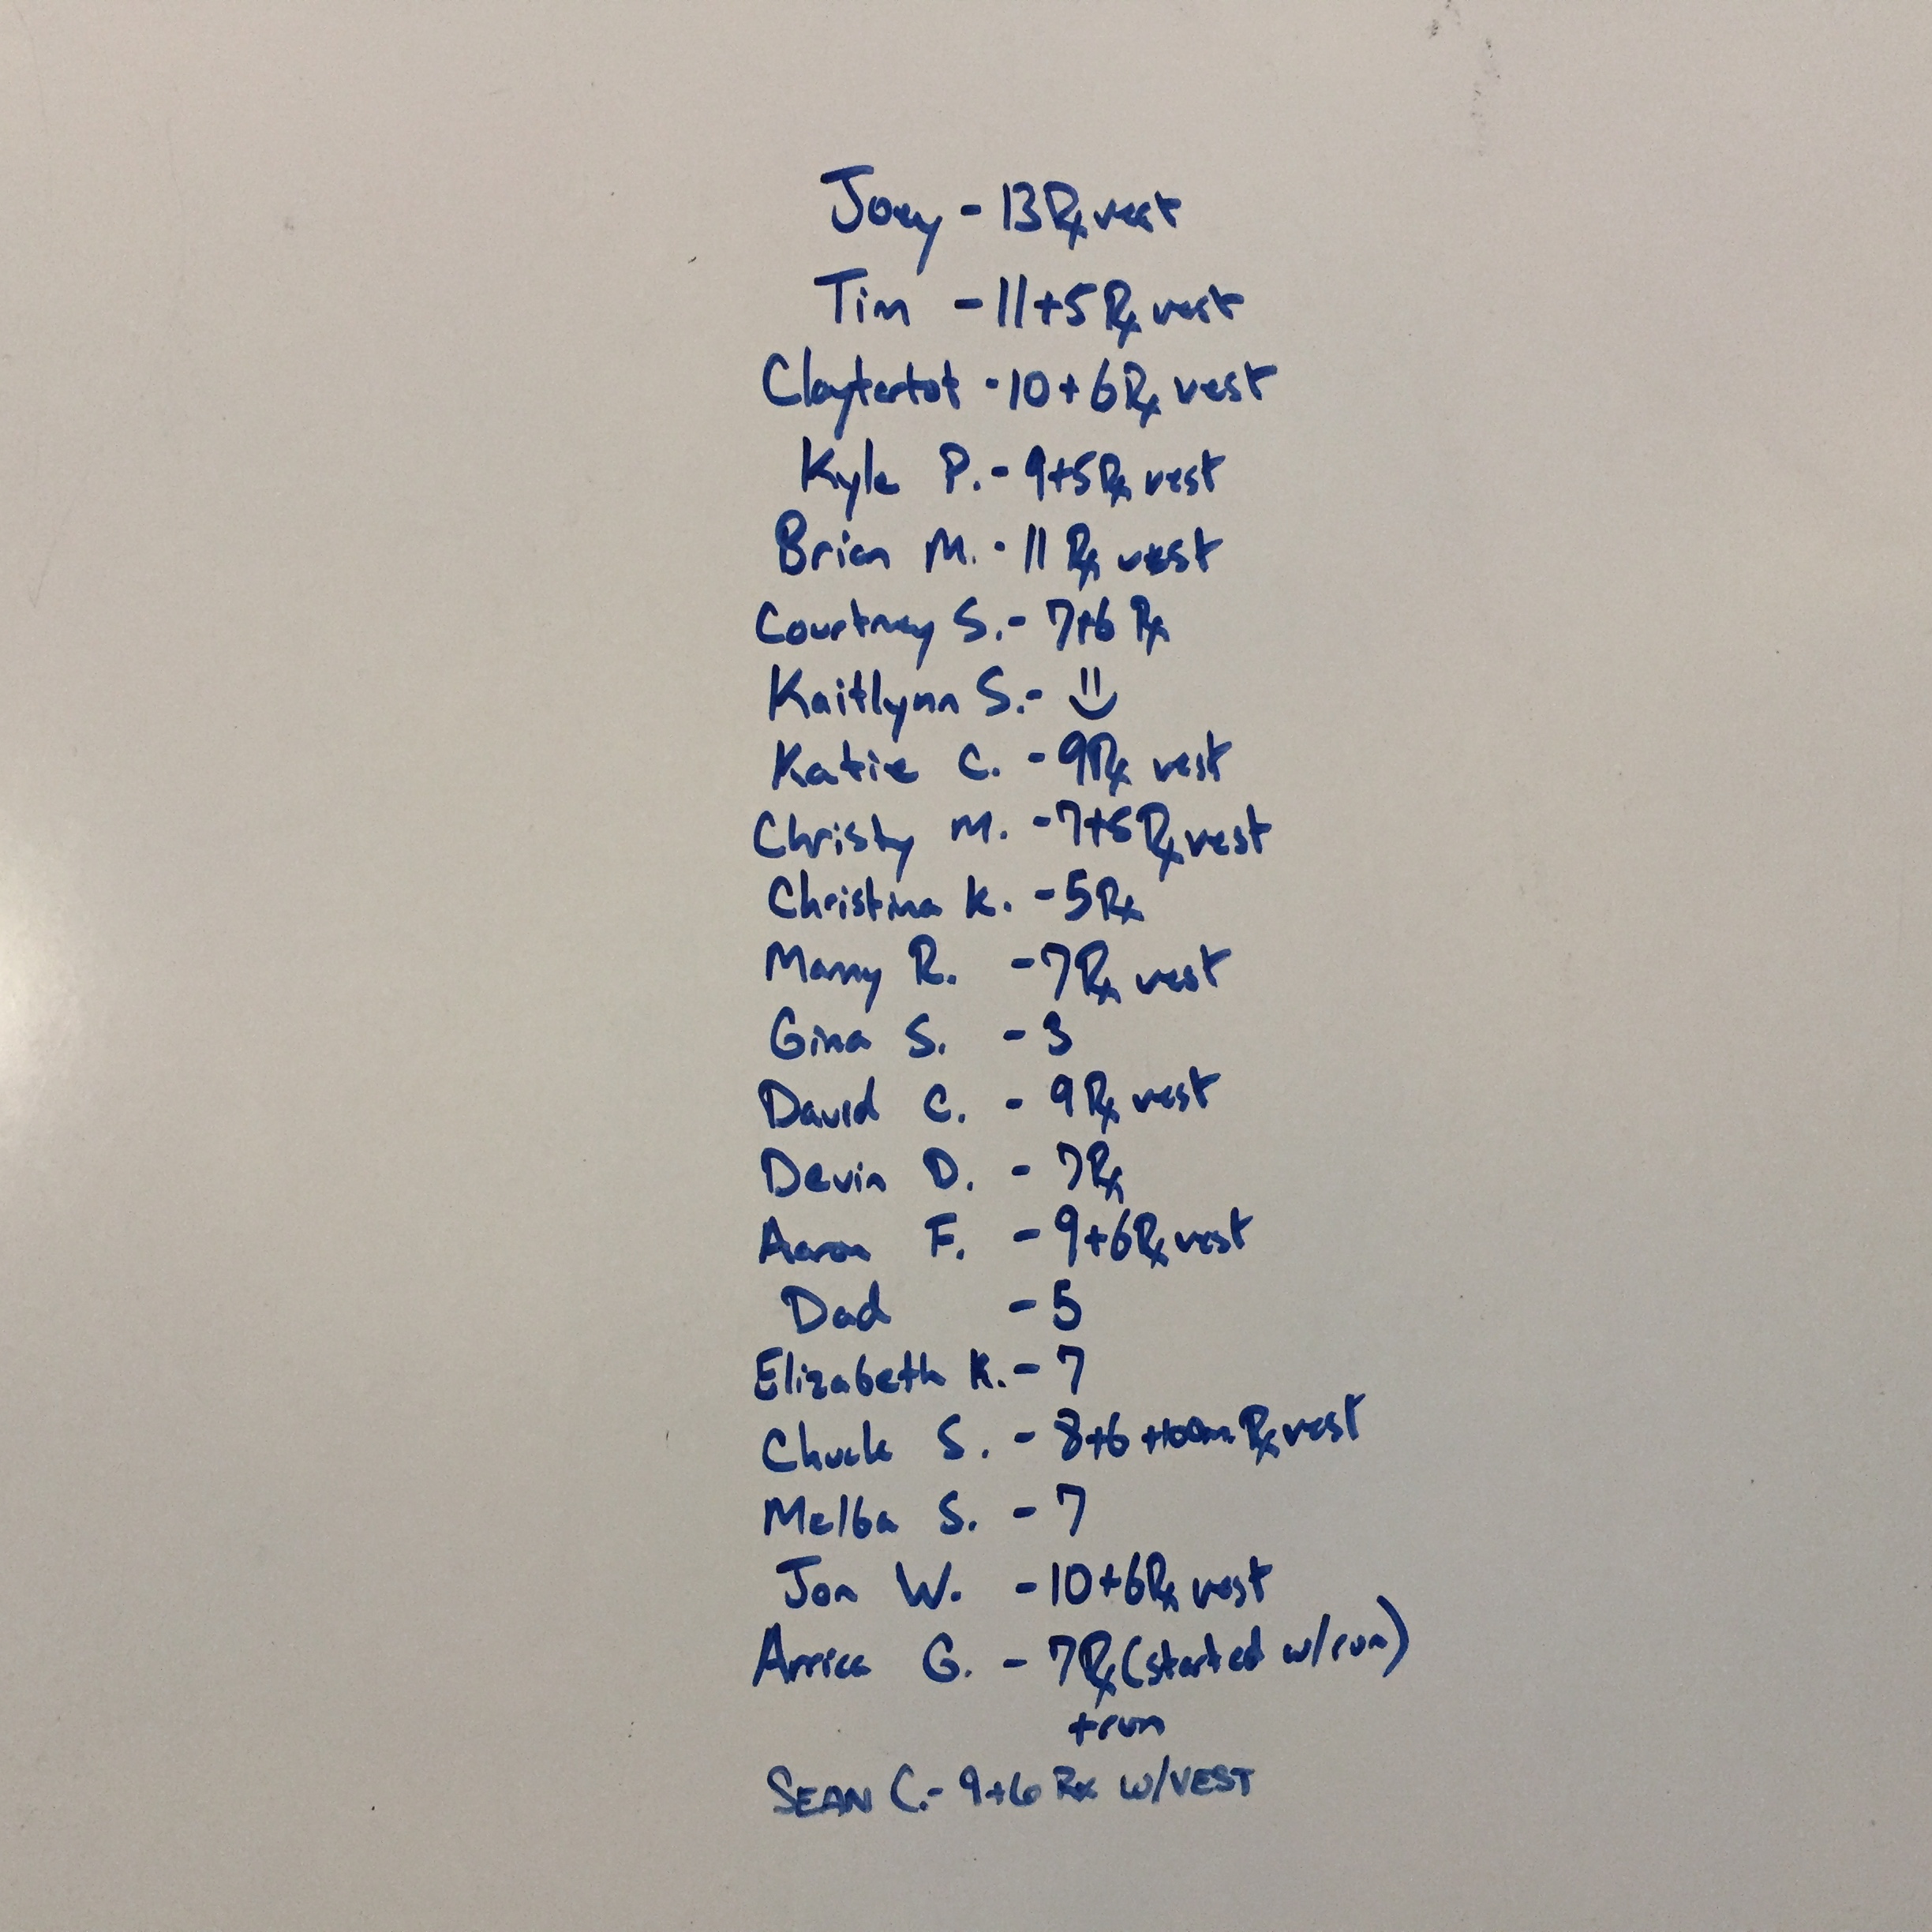 Joey - 13 Rx vest
Tim - 11+5 Rx vest
Claytertot - 10+6 Rx vest
Kyle P. - 9+5 Rx vest
Brian M. - 11 Rx vest
Courtney S. - 7+6 Rx
Kaitlynn S. - :)
Katie C. - 9 Rx vest
Christy M. - 7+5 Rx vest
Christina K. - 5 Rx
Manny R. - 7 Rx vest
Gina S. - 3
David C. - 9 Rx vest
Devin D. - 7 Rx
Aaron F. - 9+6 Rx vest
Dad - 5
Elizabeth K. - 7
Chuck S. - 8+6 +100m Rx vest
Melba S. - 7
Jon W. - 10+6 Rx vest
Arrica G. - 7 Rx (started w/run)
+run
SEAN C. - 9+6 Rx W/VEST